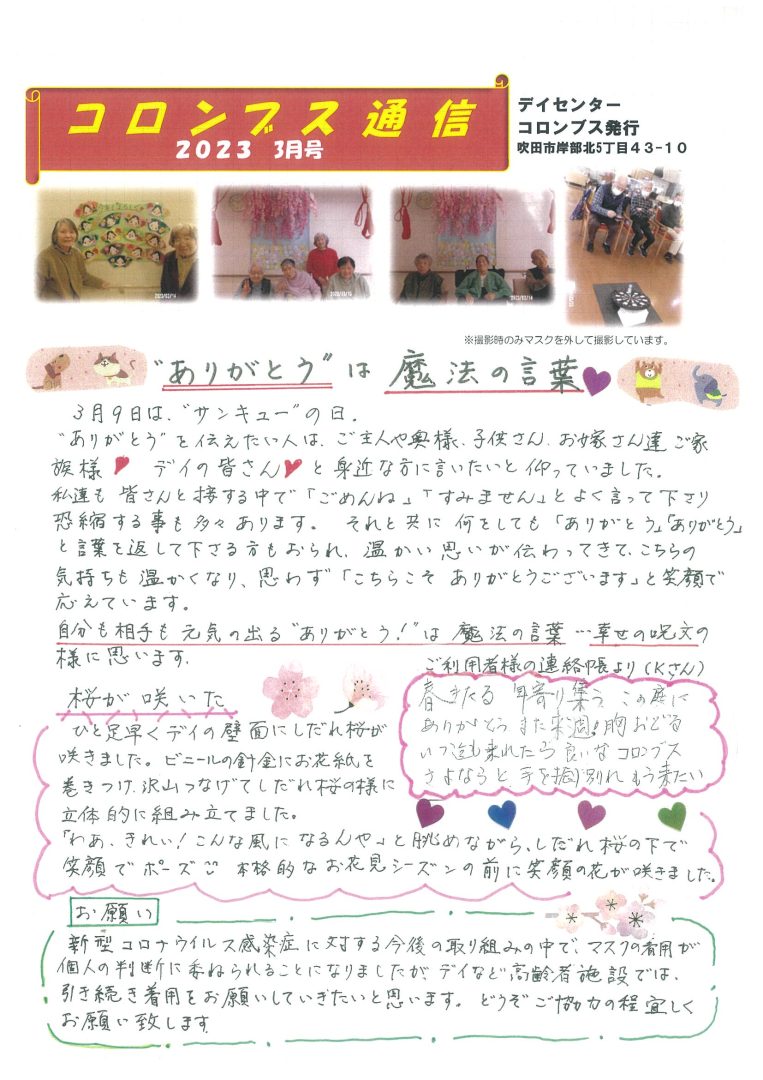 コロンブス通信
2023 3月号
デイセンター
コロンブス発行
吹田市岸部北5丁目43-10
※撮影時のみマスクを外して撮影しています。
"ありがとう"は 魔法の言葉
3月9日は、"サンキュー"の日.
"ありがとう"を伝えたい人は、ご主人や奥様、子供さん、お嫁さん達ご家
族様 デイの皆さん と身近な方に言いたいと仰っていました.
私達も 皆さんと接する中で「ごめんね」「すみません」とよく言って下さり
恐縮する事も多々あります。 それと共に 何をしても「ありがとう」「ありがとう」
と言葉を返して下さる方もおられ、温かい思いが伝わってきて、こちらの
気持ちも温かくなり、思わず「こちらこそ ありがとうございます」と笑顔で
応えています。
自分も相手も元気の出る"ありがとう!"は 魔法の言葉…幸せの呪文の
様に思います.
ご利用者様の連絡帳より(Kさん)
春きたる 年寄り集う この庭に
ありがとう また来週! 胸おどる
いつ迄も来れたら良いな コロンブス
さよならと 手を振り別れ もう来たい
桜が咲いた
ひと足早くデイの壁面にしだれ桜が
咲きました。ビニールの針金にお花紙を
巻きつけ、沢山つなげてしだれ桜の様に
立体的に組み立てました。
「わあ、きれい!こんな風に なるんや」と眺めながら、しだれ桜の下で
笑顔でポーズ 本格的なお花見シーズンの前に笑顔の花が咲きました。
お願い
新型コロナウイルス感染症に対する今後の取り組みの中で、マスクの着用が
個人の判断に委ねられることになりましたが、デイなど高齢者施設では、
引き続き着用をお願いしていきたいと思います。どうぞご協力の程宜しく
お願い致します